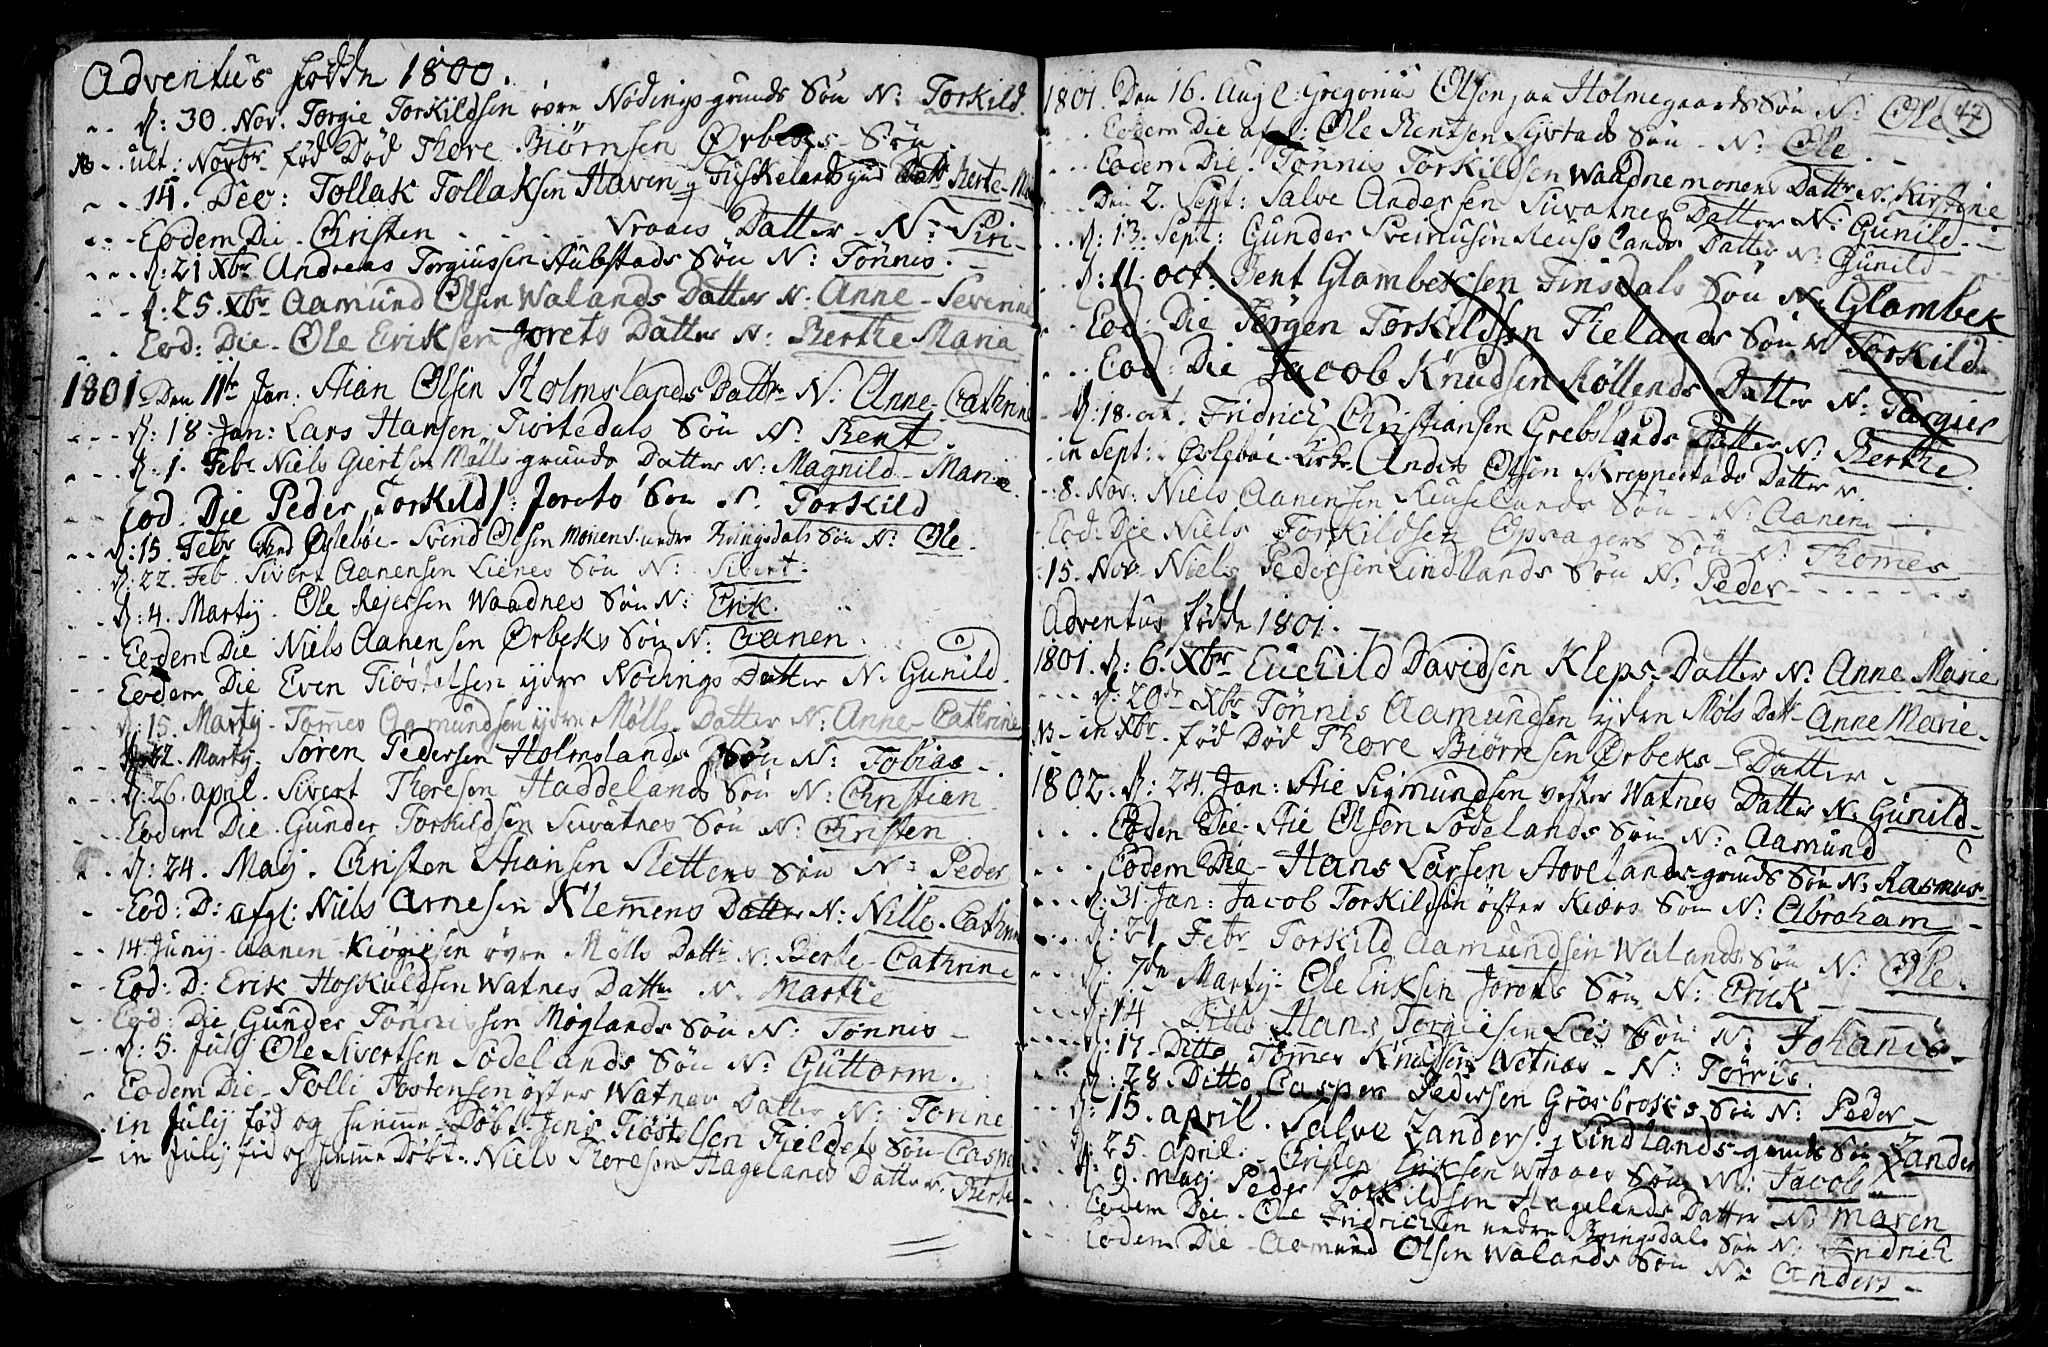 Adventus fødde 1800.
d: 30. Nov. Torgie Torkildsen øvre Nødings-grunds Søn N: Torkild.
NB - ult: Novbr fød Død Thore Biørnsen Ørbeks - Søn.
14. Dec: Tollak Tollaksen Haven Fiskelands Datt: Berte-
Eodem Die - Christen - - - - Vraaes Datter - N: Siri -
d: 21 Xbr Andreas Torgiussen Aubstads Søn N: Tønnis.
d: 25. Xbr Aamund Olsen Walands Datter N: Anne - Severine
Eod: Die - Ole Eriksen Jorets Datter N: Berthe Maria
1801 - Den 11te Jan: Stian Olsen Holmslands Datter N: Anne-Cathrine
d: 18 Jan: Lars Hansen Tiortedals Søn N: Bent.
d. 1. Feb: Niels Giertsen Mølls-grunds Datter N: Magnild - Marie.
Eod. Die Peder Torkilds: Jorets Søn N. Torkild
d: 15. Febr ved Øslebøe - Svend Olsen Monen nedre Ringsdals Søn N: Ole.
d: 22. Feb. Sivert Aanensen Lienes Søn N: Sivert.
d: 4. Martij. Ole Rejersen Waadnes Søn N: Erik.
Eodem Die Niels Aanensen Ørbeks Søn N: Aanen.
Eodem Die Even Tiøstelsen ijdre Nødings Datter N: Gunild.
d: 15. Martij - Tomes Aamundsen ijdre Mølls - Datter N: Anne - Cathrine
22. Martij. Søren Pedersen Holmslands Søn N: Tobias -
d: 26. april. Sivert Thoresen Haddelands Søn N: Christian
Eodem Die. Gunder Torkildsen Suvatnes Søn N: Christen
d: 24. Maij. Christen Stiansen Slettens Søn N: Peder
Eod: D: afgl: Niels Arnesen Klemens Datter N: Nille - Cathrine
14 Junij - Aanen Kiøgiesen øvre Mølls Datter N: Berte - Cathrine
Eod: D: Erik Hoskuldsen Watnes Datter N. Marthe
Eod: Die Gunder Tønnessen Møglands Søn N: Tønnis -
d: 5. Julij Ole Sivertsen Sødelands Søn N: Guttorm.
Eodem Die - Tolli Tostensen øster Watnes Datter N: Torine
in Julij fød og hiemme Døbt. Jens Tiøstelsen Fieldets Søn - Caspar
in Julij fød og hiemme Døbt. Niels Thoresen Hagelands Datter. Berte
47
1801. Den 16. Aug Gregorius Olsen paa Holmegaards Søn N: Ole
Eodem Die afgl: Ole Bentsen Sijvstads Søn - N: Ole.
Eodem Die. Tønnis Torkildsen Waadnemonens Datter N. Kirstine
Den 2. Sept: Salve Andersen Suvatnes Datter N: Gunild -
d: 13. Sept: Gunder Sveinusen Reuslands Datter N: Gunild -
d: 11. oct: Bent Glambeksen Finsdals Søn N: Glambek
Eod: Die Jørgen Torkildsen Thelands Søn N Torkild
Eod: Die Jacob Knudsen Støllends Datter N: Torgier
d: 18. oct. Fridrich Christiansen Grebslands Datter N: Berthe.
in Sept: Øslebøe - Kirke Anders Olsen Kreppestads Datter N.
8. Nov: Niels Aanensen Reuselands Søn - N: Aanen -
Eod: Die Niels Torkildsen Opsagers Søn - N: Thomes
15. Nov. Niels Pedersen Lindlands Søn N. Peder - - - - -
Adventus fødde 1801. -
1801. d: 6. Xbr Euchild Davidsen Kleps - Datter N: Anne Marie
d. 20de Xbr Tønnis Aamundsen ijdre Møls Datt - Anne Marie -
NB - in Xbr. fød Død Thore Biørnsen Ørbeks - Datter -
1802. d: 24. Jan: Stie Sigmundsen vester Watnes Datter N: Gunild -
Eodem Die - Stie Olsen Sødelands Søn N: Aamund
Eodem Die - Hans Larsen Hovelands-grunds Søn N: Rasmus -
d: 31 Jan: Jacob Torkildsen øster Kiærs Søn N: Abraham -
d: 21 Febr Torkild Aamundsen Walands Søn N: Ole -
d. 7de Martij - Ole Eriksen Jorets Søn N: Erick -
d: 14 Ditto Hans Torgiesen Lies Søn N: Johanis -
d: 17 - Ditto Tomes Knudsen Wetnes - N: Torris.
d: 28. Ditto Casper Pedersen Grøsbroks Søn N: Peder -
d: 15. april. Salve Zanders: Lindlands-grunds Søn Zander
d: 25. april. Christen Eriksen Wraaes Søn N: Jacob.
d. 9. maij Peder Torkildsen Hagelands Datter N: Maren
Eodem Die - Ole Fridrichsen nedre Ringsdals Søn N: Fridrich
Eodem Die - Aamund Olsen Walands Søn N: Anders -